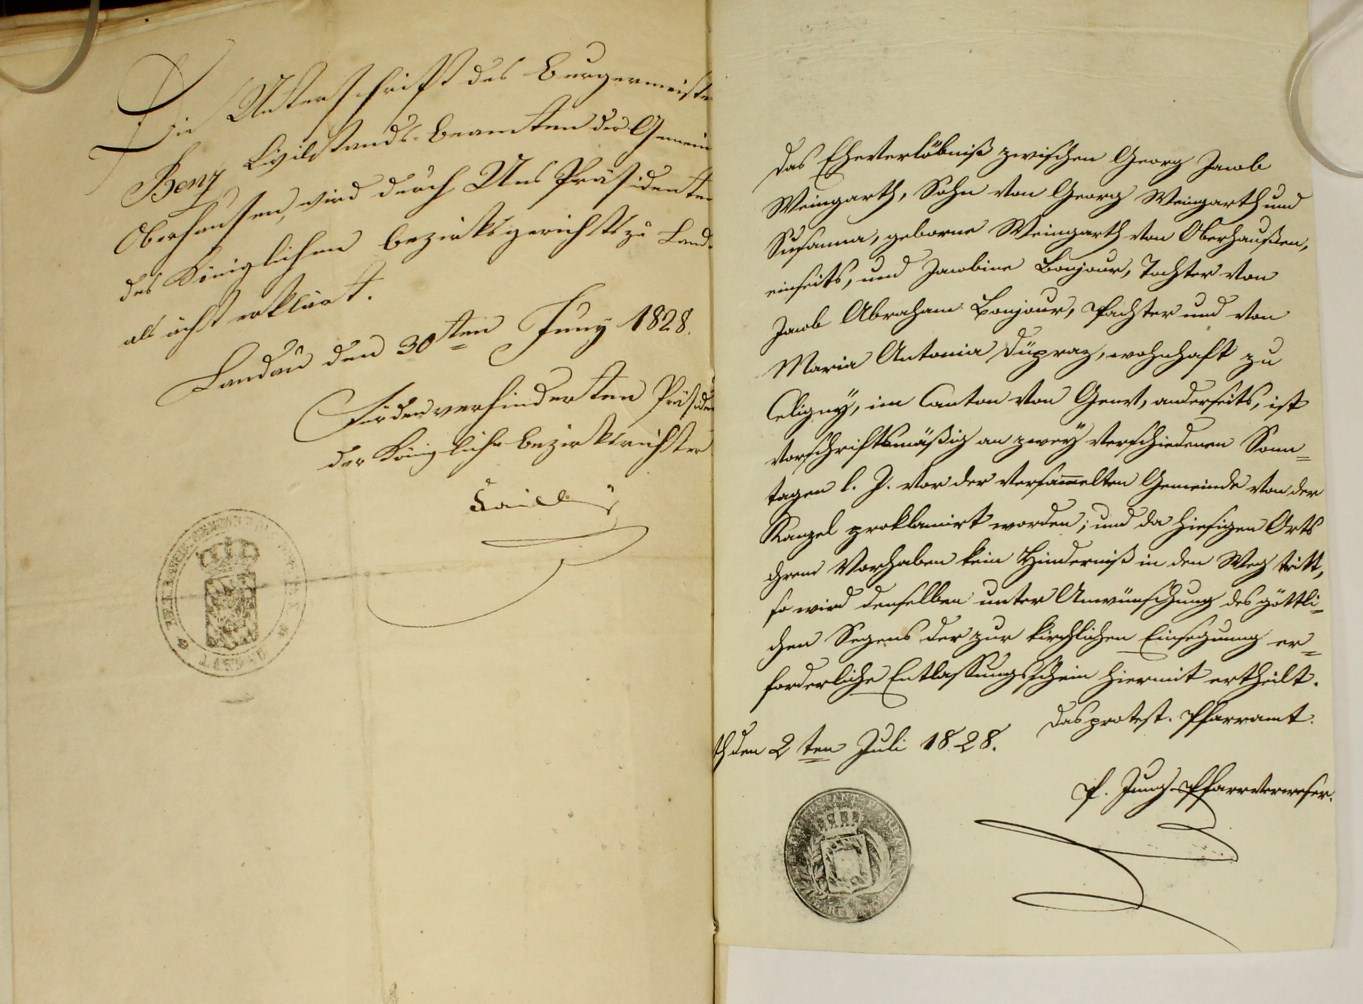 Die Unterschrift des Burgermeiste
Benz Civilstands-beamten der Gemein
Oberhausen, wird durch Uns Präsidenten
des Königlichen bezirksgerichts zu Land-
als ächt erklärt.
Landau den 30ten Juny 1828.
Für den verhinderten Präsiden
der Königliche bezirksrichter
LANDAU
Das Eheverlöbniß zwischen Georg Jacob
Weingarth, Sohn von Georg Weingarth und
Susanna, geborne Weingarth von Oberhaußen,
einseits, und Jacobine Bonjour, Tochter von
Jacob Abraham Bonjour, Pachter und von
Maria Antonia Düpraz, wohnhaft zu
Celigny, im Canton von Genv, anderseits, ist
vorschriftsmäßig an zwey verschiedenen Sonn=
tagen l. J. vor der versam̅elten Gemeinde von der
Kanzel proklamirt worden; und da hiesigen Orts
ihrem Vorhaben kein Hinderniß in den Weg tritt,
so wird denselben unter Anwünschung des göttli=
chen Segens der zur kirchlichen Einsegnung er=
forderliche Entlassungsschein hiermit ertheilt.
Das protest. Pfarramt.
th den 2ten Juli 1828.
P. Jung Pfarrverweser.